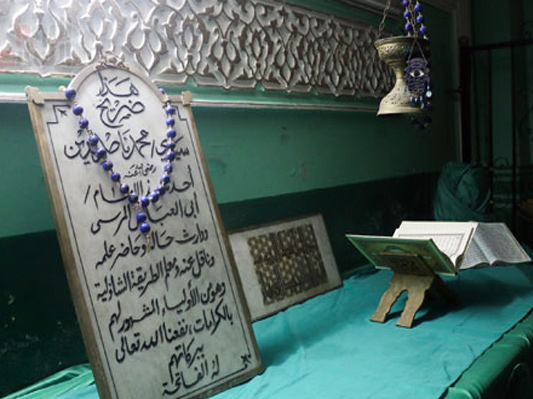 هذا
ضريح
سيدى / محمد ناصر الدين
رضى الله عنه
أحد الإمام /
أبى العباس المرسى
ووارث حاله وحاضر علمه
وناقل عنه ومعلم الطريقة الشاذلية
وهو من الأولياء المشهور لهم
بالكرامات، نفعنا الله تعالى
ببركاتهم
له الفاتحة